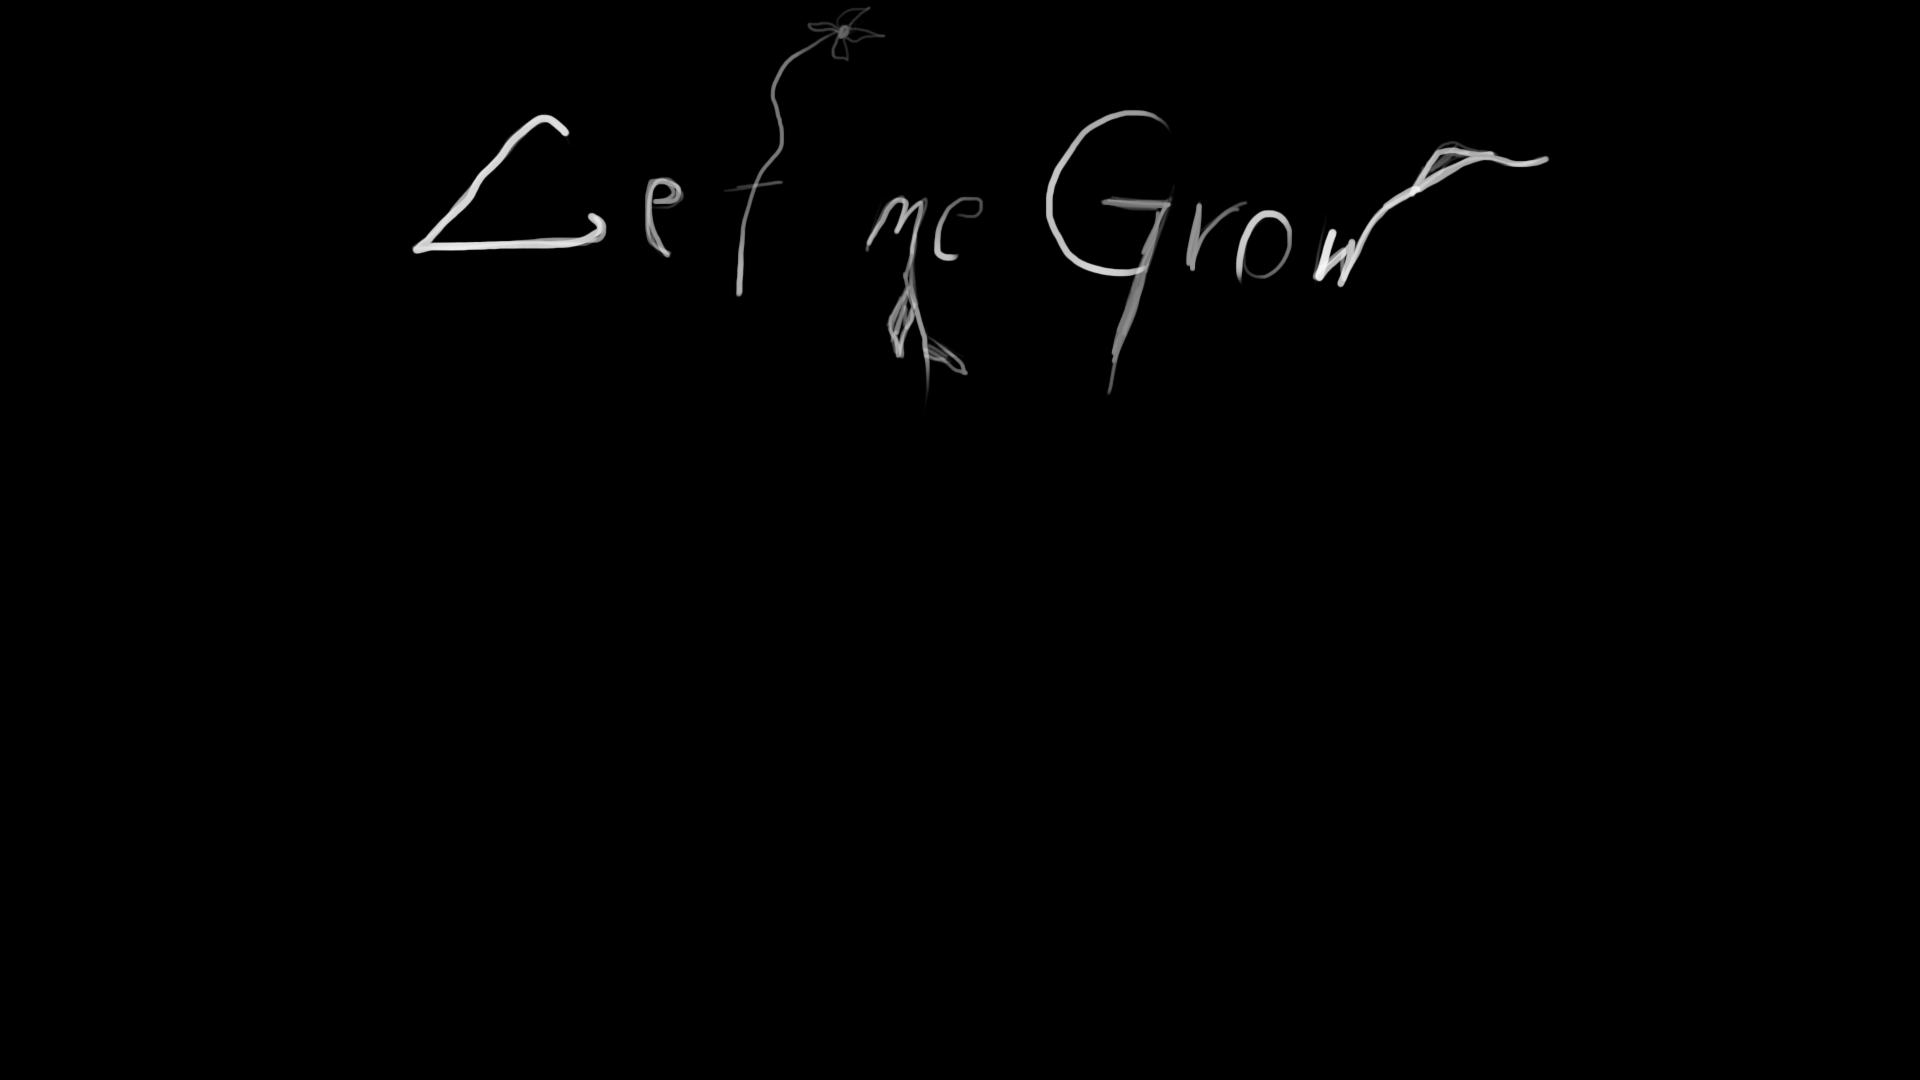 Let me Grow